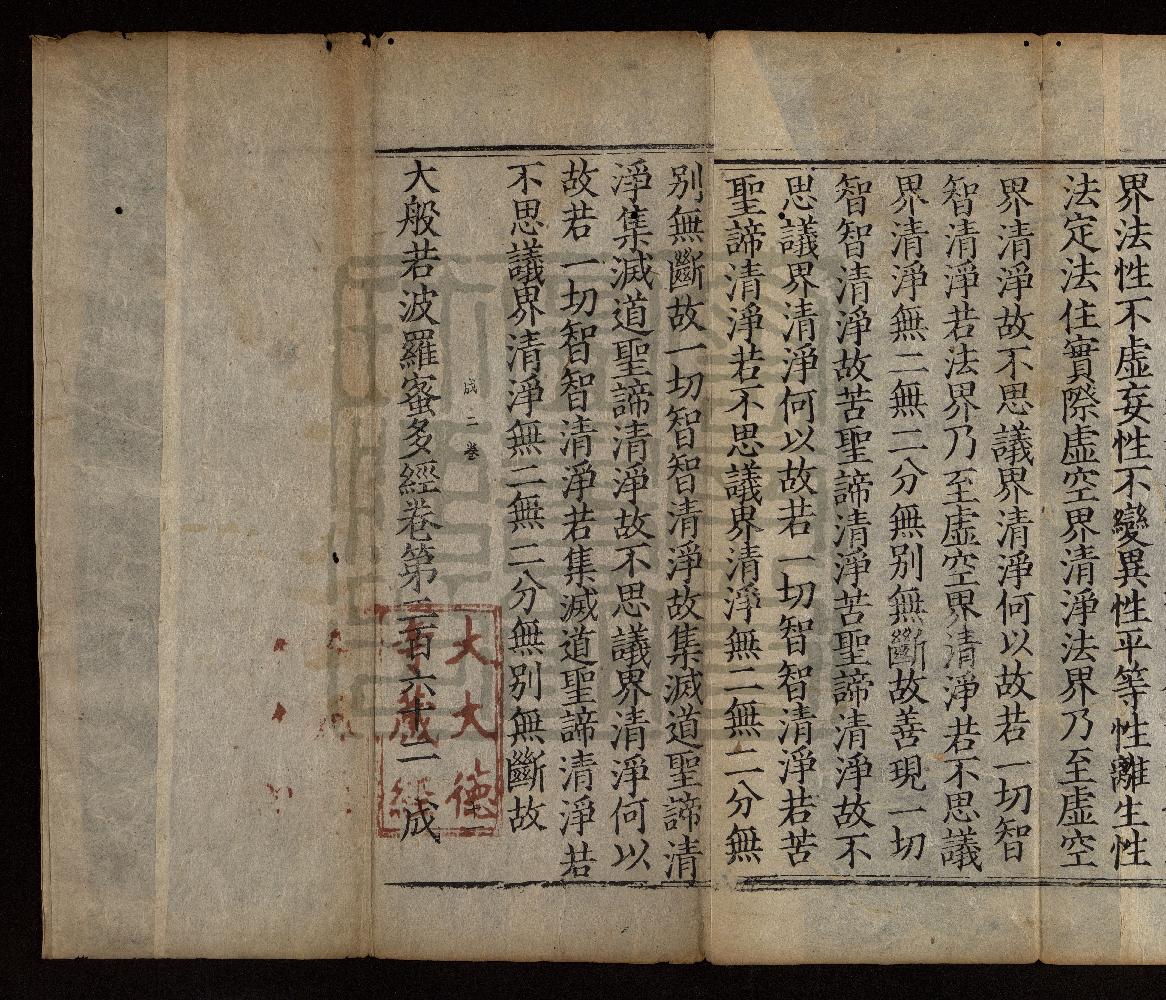 界法性不虛妄性不變異性平等性離生性
法定法住實際虛空界清淨法界乃至虛空
界清淨故不思議界清淨何以故若一切智
智清淨若法界乃至虛空界清淨若不思議
界清淨無二無二分無別無斷故善現一切
智智清淨故苦聖諦清淨苦聖諦清淨故不
思議界清淨何以故若一切智智清淨若苦
聖諦清淨若不思議界清淨無二無二分無
別無斷故一切智智清淨故集滅道聖諦清
淨集滅道聖諦清淨故不思議界清淨何以
故若一切智智清淨若集滅道聖諦清淨若
不思議界清淨無二無二分無別無斷故
成二卷
大般若波羅蜜多經卷第二百六十二 成二
大大德
藏經